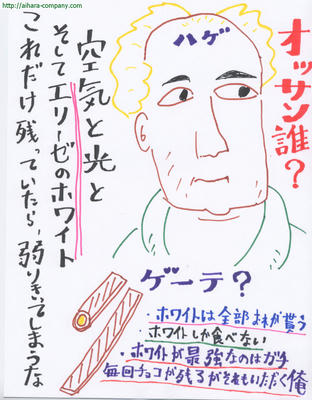 http://aihara-company.com/
オッサン誰？
ハゲ
空気と光と
そしてエリーゼのホワイト
これだけ残っていたら、弱りきってしまうな
ゲーテ？
・ホワイトは全部おれが貰う
・ホワイトしか食べない
・ホワイトが最強なのはガチ
毎回チョコが残るがそれもいただく俺